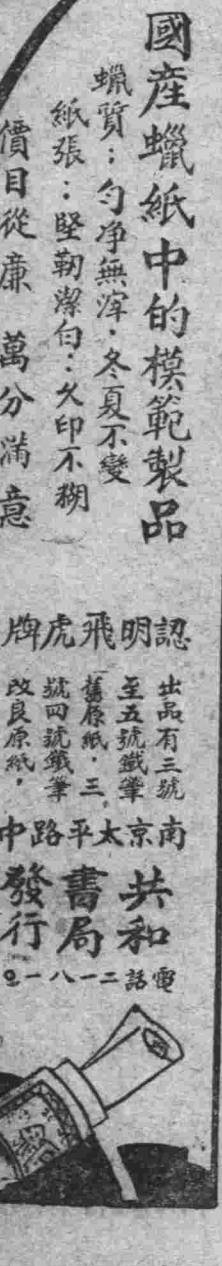 國產蠟紙中的模範製品
蠟質：勻净無滓．冬夏不變
紙張：堅靭潔白：久印不糊
價目從廉 萬分滿意
認明飛虎牌
出品有三號
至五號鐵筆
舊原紙．三
號四號鐵筆
改良原紙．
南京太平路中
共和
書局
發行
電話二一八一